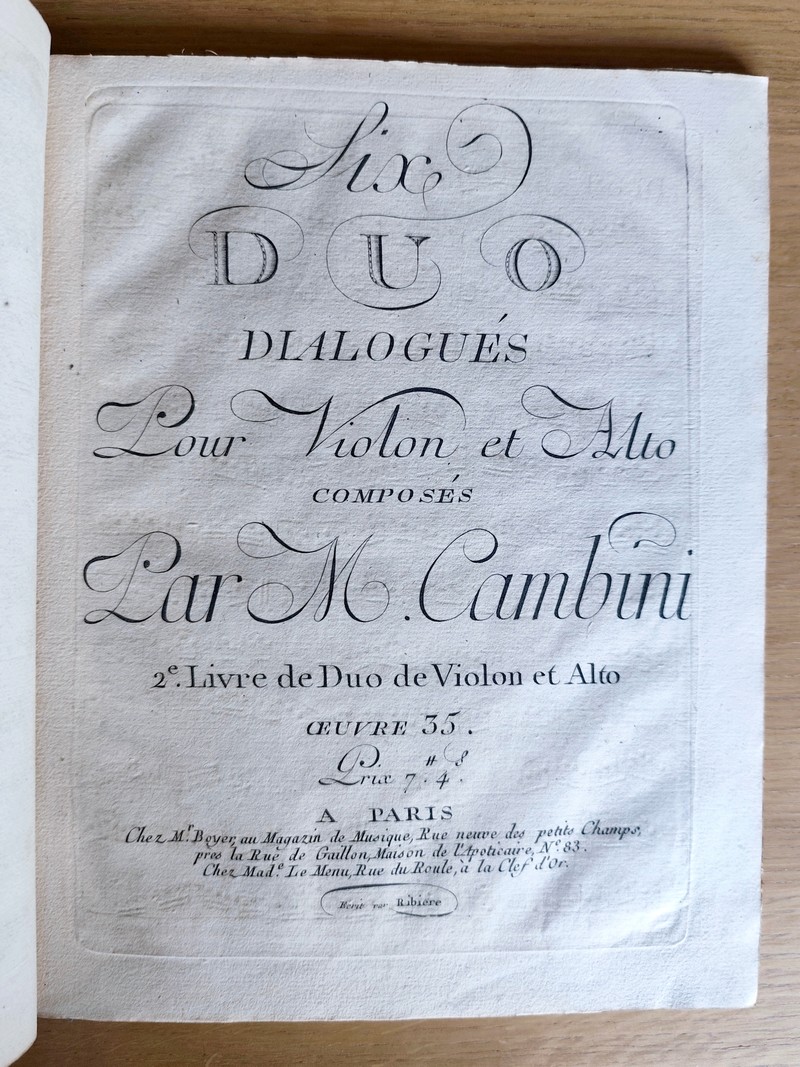 Six
DUO
DIALOGUÉS
Pour Violon et Alto
COMPOSÉS
Par M. Cambini
2e. Livre de Duo de Violon et Alto
ŒUVRE 35.
₶ s
Prix 7. 4.
A PARIS
Chez Mr. Boyer, au Magazin de Musique, Rue neuve des petits Champs,
pres la Rue de Gaillon, Maison de l'Apoticaire, No. 83.
Chez Made. Le Menu, Rue du Roule, à la Clef d'Or.
Ecrit par Ribiere